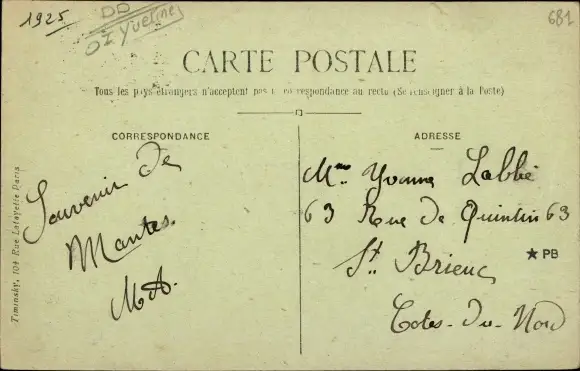 1925
DD
Yveline
681
CARTE POSTALE
Tous les pays étrangers n'acceptent pas la correspondance au recto (Se renseigner à la Poste)
CORRESPONDANCE
Souvenir de
Mantes.
MA.
Timinsky, 104 Rue Lafayette Paris
ADRESSE
Mme Yvonne Labbé
63 Rue de Quintin 63
St. Brieuc
Cotes-du-Nord
★ PB